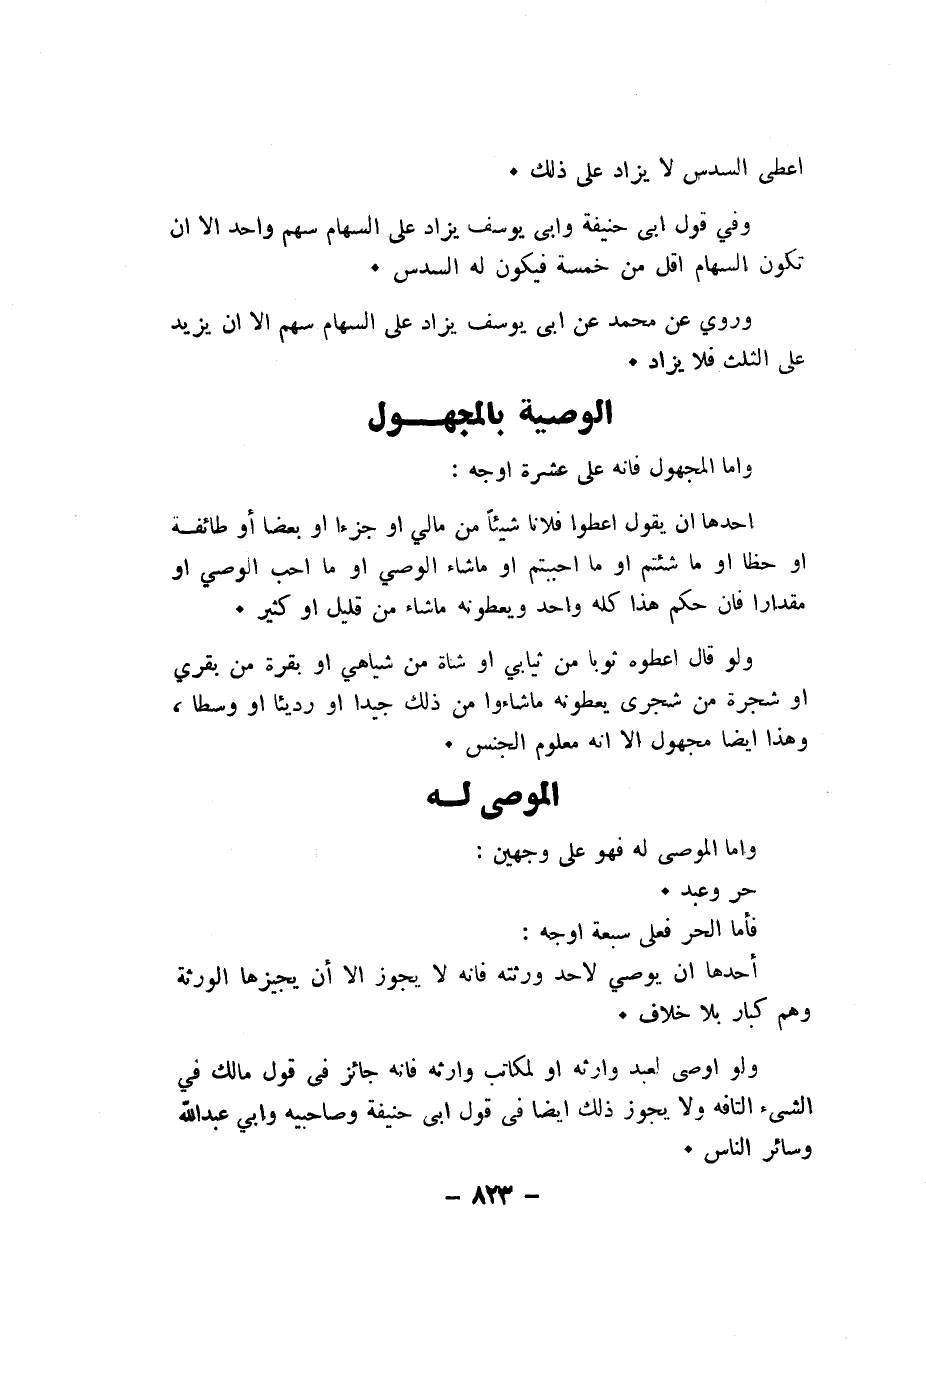 اعطى السدس لا يزاد على ذلك .
وفي قول ابى حنيفة وابى يوسف يزاد على السهام سهم واحد الا ان
تكون السهام اقل من خمسة فيكون له السدس .
وروي عن محمد عن ابى يوسف يزاد على السهام سهم الا ان يزيد
على الثلث فلا يزاد .
الوصية بالمجهـــول
واما المجهول فانه على عشرة اوجه :
احدها ان يقول اعطوا فلانا شيئاً من مالي او جزءا او بعضا أو طائفــة
او حظا او ما شئتم او ما احببتم او ماشاء الوصي او ما احب الوصي او
مقدارا فان حكم هذا كله واحد ويعطونه ماشاء من قليل او كثير .
ولو قال اعطوه ثوبا من ثيابي او شاة من شياهي او بقرة من بقري
او شجرة من شجرى يعطونه ماشاءوا من ذلك جيدا او رديئا او وسطا ،
وهذا ايضا مجهول الا انه معلوم الجنس .
الموصى لـــه
واما الموصى له فهو على وجهين :
حر وعبد .
فأما الحر فعلى سبعة اوجه :
أحدها ان يوصي لاحد ورثته فانه لا يجوز الا أن يجيزها الورثة
وهم كبار بلا خلاف .
ولو اوصى لعبد وارثه او لمكاتب وارثه فانه جائز فى قول مالك في
الشىء التافه ولا يجوز ذلك ايضا فى قول ابى حنيفة وصاحبيه وابي عبدالله
وسائر الناس .
- ٨٢٣ -